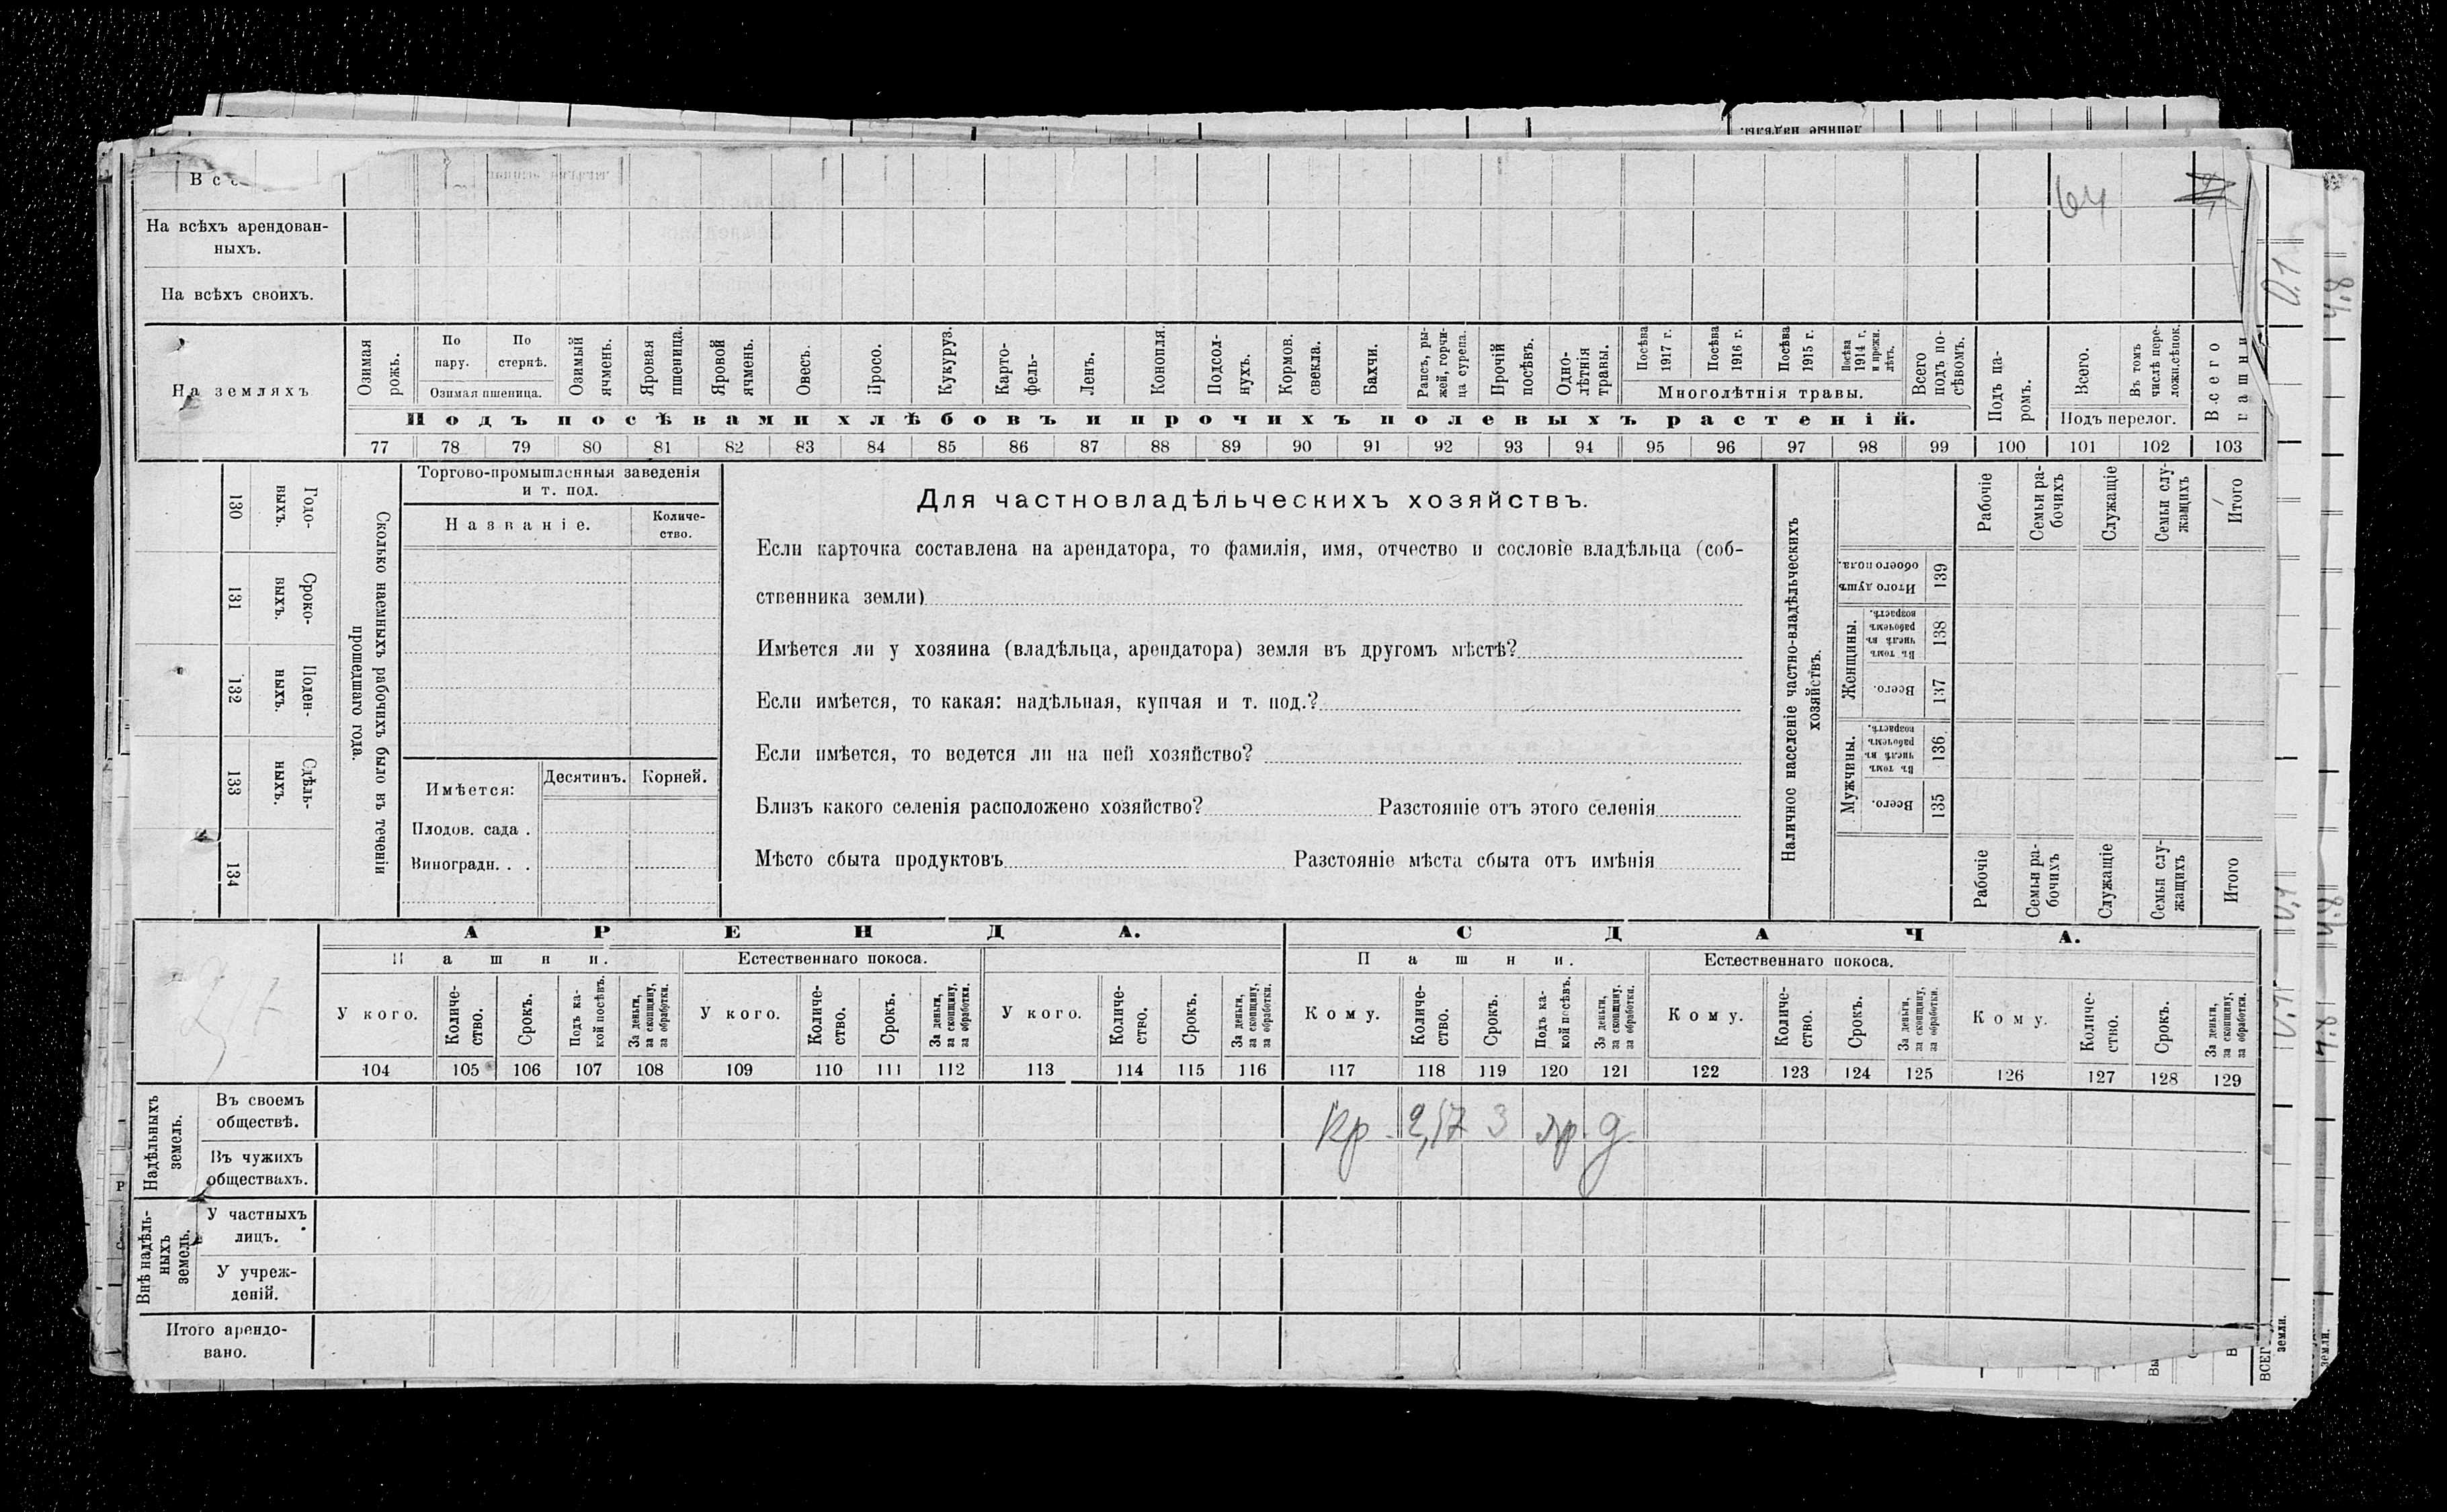 денные надѣлы.
64
На всѣхъ арендован-
ныхъ.
На всѣхъ своихъ.
На земляхъ
Озимая рожь.
По пару.
По стернѣ.
Озимая пшеница.
Озимый ячмень.
Яровая пшеница.
Яровой ячмень.
Овесъ.
Просо.
Кукуруз.
Карто-
фель-
Ленъ.
Конопля.
Подсол-
нухъ.
Кормов.
свекла.
Бахчи.
Рапсъ, ры-
жей, горчи-
ца сурепа.
Прочій
посѣвъ.
Одно-
лѣтнія
травы.
Посѣва
1917 г.
Посѣва
1916 г.
Посѣва
1915 г.
Посѣва
1914 г.
и прежн.
лѣтъ.
Многолѣтнія травы.
Всего
подъ по-
сѣвомъ.
Подъ па-
ромъ.
Всего.
Въ томъ
числѣ пере-
ложн.сѣпок.
Подъ перелог.
Всего
пашни
Подъ посѣвами хлѣбовъ и прочихъ полевыхъ растеній.
77 78 79 80 81 82 83 84 85 86 87 88 89 90 91 92 93 94 95 96 97 98 99 100 101 102 103
130
Годо-
ныхъ.
131
Сроко-
выхъ.
132
Поден-
ныхъ.
133
Сдѣль-
ныхъ.
134
Сколько наемныхъ рабочихъ было въ теченіи
прошедшаго года.
Торгово-промышленныя заведенія
и т. под.
Названіе.
Количе-
ство.
Имѣется:
Десятинъ.
Корней.
Плодов. сада .
Виноградн. . .
Для частновладѣльческихъ хозяйствъ.
Если карточка составлена на арендатора, то фамилія, имя, отчество и сословіе владѣльца (соб-
ственника земли)
Имѣется ли у хозяина (владѣльца, арендатора) земля въ другомъ мѣстѣ?
Если имѣется, то какая: надѣльная, купчая и т. под.?
Если имѣется, то ведется ли на ней хозяйство?
Близъ какого селенія расположено хозяйство? Разстояніе отъ этого селенія
Мѣсто сбыта продуктовъ Разстояніе мѣста сбыта отъ имѣнія
Наличное населеніе частно-владѣльческихъ
хозяйствъ.
Рабочіе
Семьи ра-
бочихъ
Служащіе
Семьи слу-
жащихъ
Итого
Итого душъ
обоего пола.
139
Женщины.
Въ томъ
числѣ въ
рабочемъ
возрастѣ.
138
Всего.
137
Мужчины.
Въ томъ
числѣ въ
рабочемъ
возрастѣ.
136
Всего.
135
Рабочіе
Семьи ра-
бочихъ
Служащіе
Семьи слу-
жащихъ
Итого
АРЕНДА.
СДАЧА.
Пашни.
Естественнаго покоса.
Пашни.
Естественнаго покоса.
У кого.
Количе-
ство.
Срокъ.
Подъ ка-
кой посѣвъ.
За деньги,
за скопщину,
за обработки.
У кого.
Количе-
ство.
Срокъ.
За деньги,
за скопщину,
за обработки.
У кого.
Количе-
ство.
Срокъ.
За деньги,
за скопщину,
за обработки.
Кому.
Количе-
ство.
Срокъ.
Подъ ка-
кой посѣвъ.
За деньги,
за скопщину.
за обработки.
Кому.
Количе-
ство.
Срокъ.
За деньги,
за скопщину,
за обработки.
Кому.
Количе-
ство.
Срокъ.
За деньги,
за скопщину,
за обработки.
104 105 106 107 108 109 110 111 112 113 114 115 116 117 118 119 120 121 122 123 124 125 126 127 128 129
Надѣльныхъ
земель.
Въ своемъ
обществѣ.
Кр. 2,57 3 яр. д
Въ чужихъ
обществахъ.
Внѣ надѣль-
ныхъ
земель.
У частныхъ
лицъ.
У учреж-
деній.
Итого арендо-
вано.
земли.
земли.